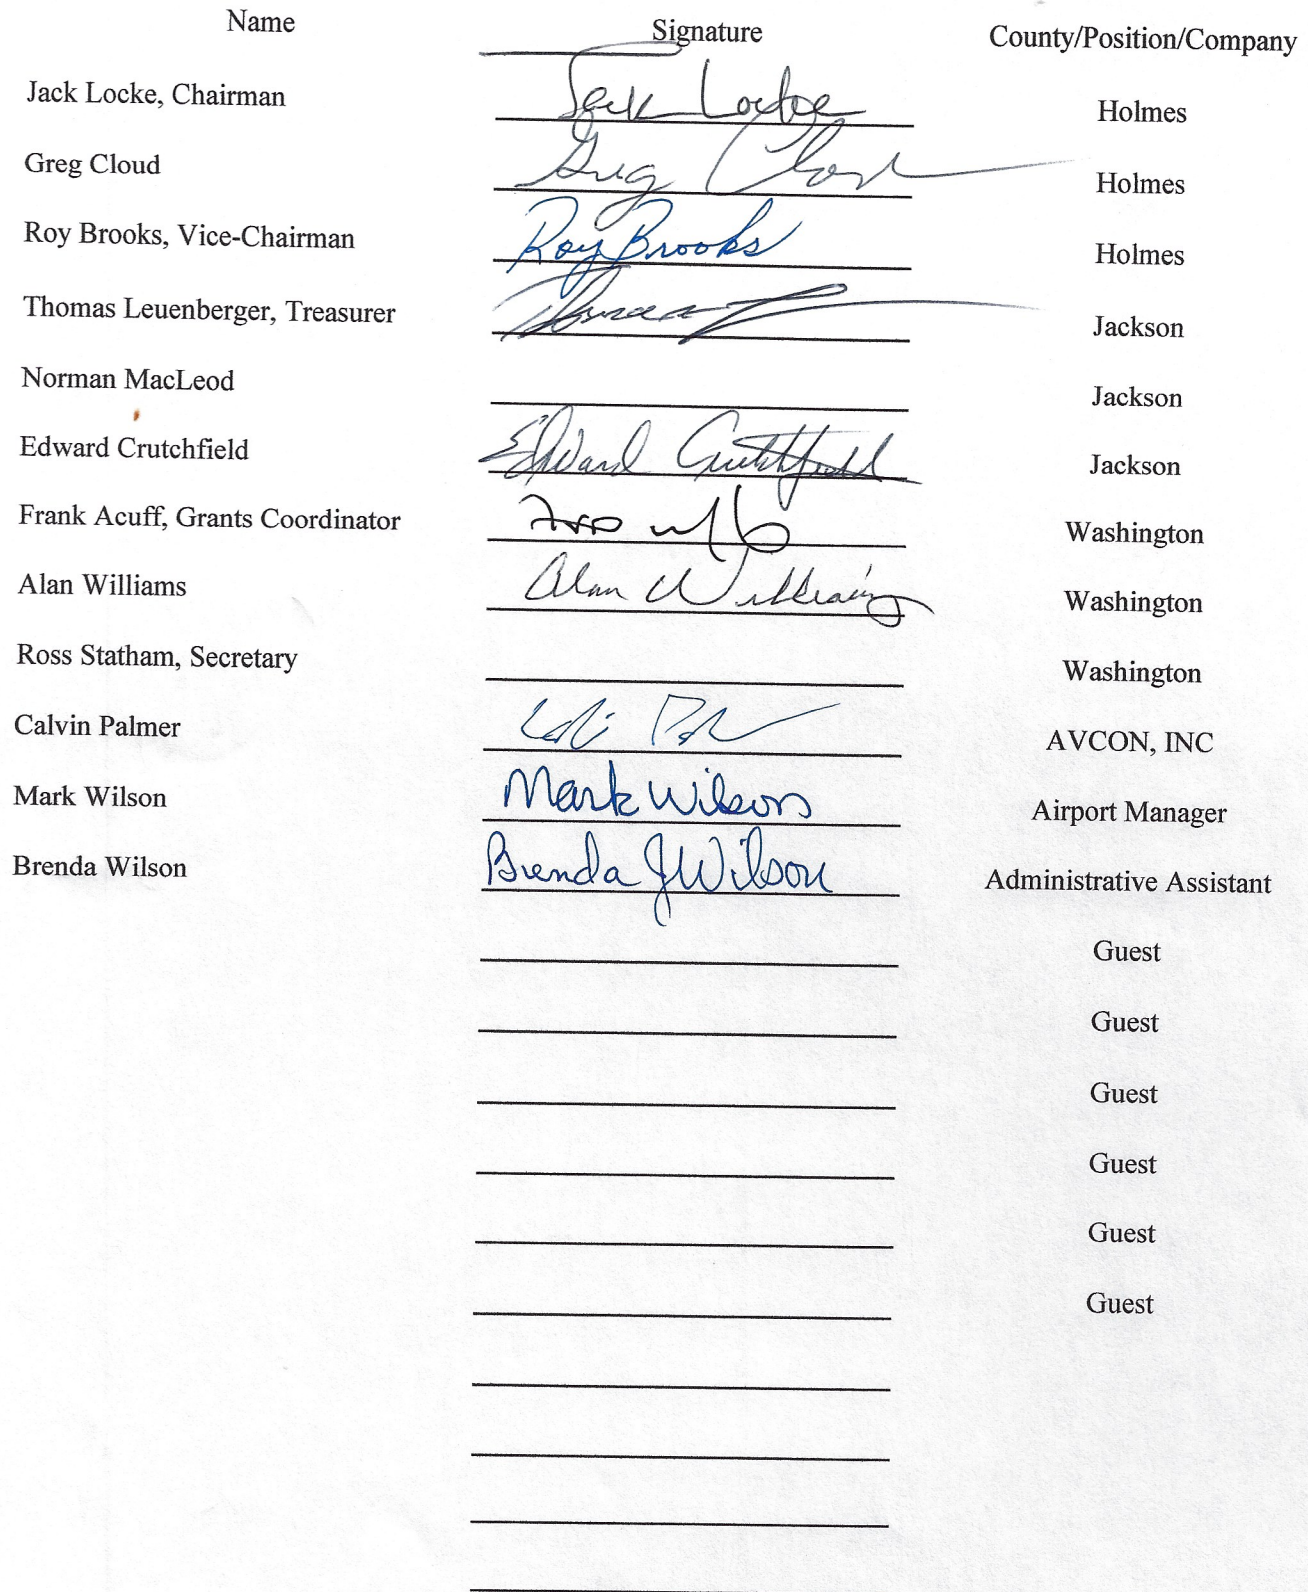 Name Signature County/Position/Company
Jack Locke, Chairman Jack Locke Holmes
Greg Cloud Greg Cloud Holmes
Roy Brooks, Vice-Chairman Roy Brooks Holmes
Thomas Leuenberger, Treasurer Jackson
Norman MacLeod Jackson
Edward Crutchfield Edward Crutchfield Jackson
Frank Acuff, Grants Coordinator Washington
Alan Williams Alan Williams Washington
Ross Statham, Secretary Washington
Calvin Palmer AVCON, INC
Mark Wilson Mark Wilson Airport Manager
Brenda Wilson Brenda J Wilson Administrative Assistant
Guest
Guest
Guest
Guest
Guest
Guest